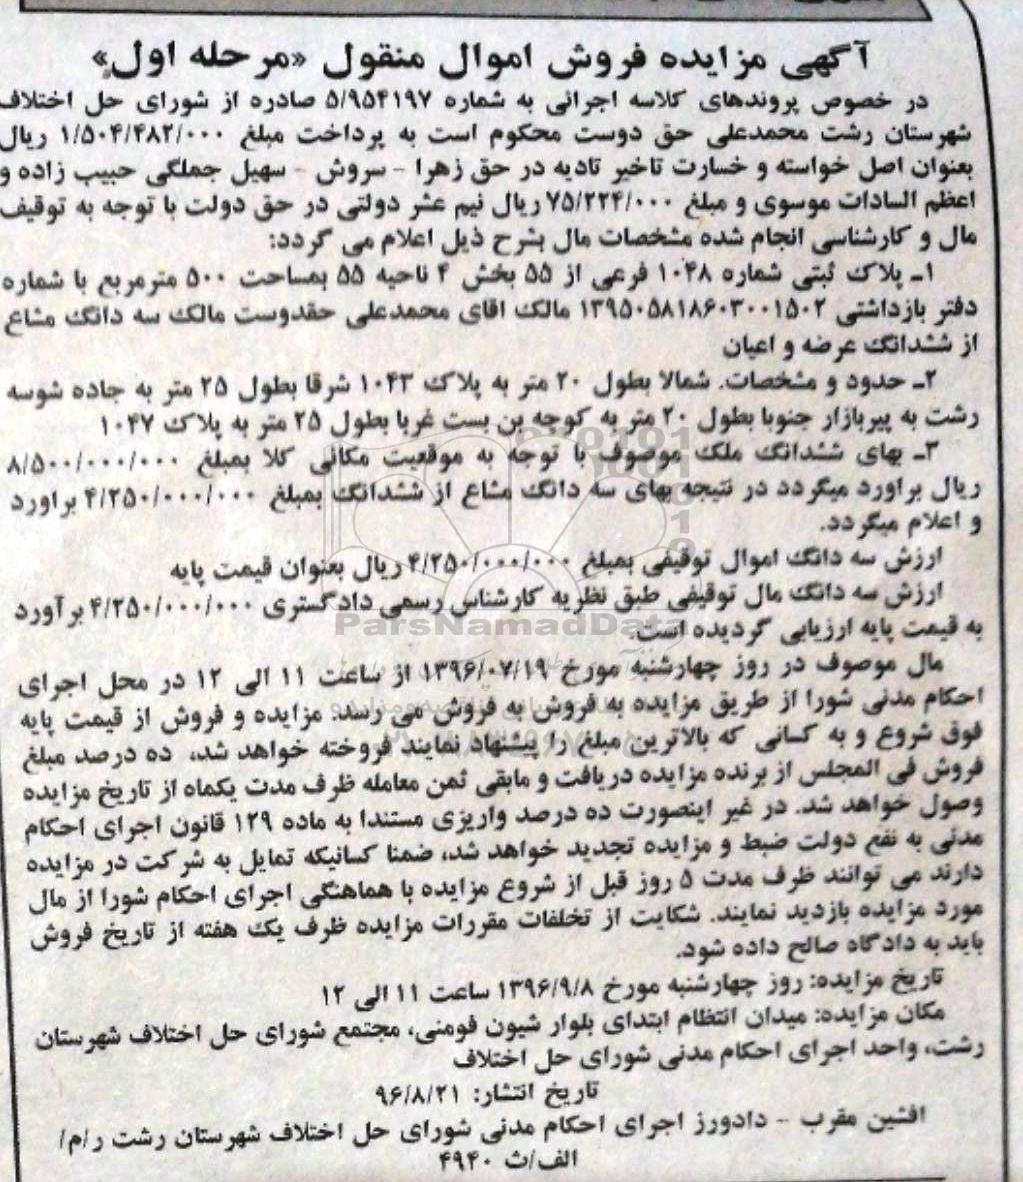 آگهی مزایده فروش اموال منقول «مرحله اول»
در خصوص پروندهای کلاسه اجرائی به شماره ۵/۹۵۴۱۹۷ صادره از شورای حل اختلاف
شهرستان رشت محمدعلی حق دوست محکوم است به پرداخت مبلغ ۱/۵۰۴/۴۸۲/۰۰۰ ریال
بعنوان اصل خواسته و خسارت تاخیر تادیه در حق زهرا - سروش - سهیل جملگی حبیب زاده و
اعظم السادات موسوی و مبلغ ۷۵/۲۲۴/۰۰۰ ریال نیم عشر دولتی در حق دولت با توجه به توقیف
مال و کارشناسی انجام شده مشخصات مال بشرح ذیل اعلام می گردد:
۱ـ پلاک ثبتی شماره ۱۰۴۸ فرعی از ۵۵ بخش ۴ ناحیه ۵۵ بمساحت ۵۰۰ مترمربع با شماره
دفتر بازداشتی ۱۳۹۵۰۵۸۱۸۶۰۳۰۰۱۵۰۲ مالک اقای محمدعلی حقدوست مالک سه دانگ مشاع
از ششدانگ عرضه و اعیان
۲ـ حدود و مشخصات. شمالا بطول ۲۰ متر به پلاک ۱۰۴۳ شرقا بطول ۲۵ متر به جاده شوسه
رشت به پیربازار جنوبا بطول ۲۰ متر به کوچه بن بست غربا بطول ۲۵ متر به پلاک ۱۰۴۷
۳ـ بهای ششدانگ ملک موصوف با توجه به موقعیت مکانی کلا بمبلغ ۸/۵۰۰/۰۰۰/۰۰۰
ریال براورد میگردد در نتیجه بهای سه دانگ مشاع از ششدانگ بمبلغ ۴/۲۵۰/۰۰۰/۰۰۰ براورد
و اعلام میگردد.
ارزش سه دانگ اموال توقیفی بمبلغ ۴/۲۵۰/۰۰۰/۰۰۰ ریال بعنوان قیمت پایه
ارزش سه دانگ مال توقیفی طبق نظریه کارشناس رسمی دادگستری ۴/۲۵۰/۰۰۰/۰۰۰ برآورد
به قیمت پایه ارزیابی گردیده است.
ParsNamadData
مال موصوف در روز چهارشنبه مورخ ۱۳۹۶/۰۷/۱۹ از ساعت ۱۱ الی ۱۲ در محل اجرای
احکام مدنی شورا از طریق مزایده به فروش به فروش می رسد. مزایده و فروش از قیمت پایه
فوق شروع و به کسانی که بالاترین مبلغ را پیشنهاد نمایند فروخته خواهد شد، ده درصد مبلغ
فروش فی المجلس از برنده مزایده دریافت و مابقی ثمن معامله ظرف مدت یکماه از تاریخ مزایده
وصول خواهد شد. در غیر اینصورت ده درصد واریزی مستندا به ماده ۱۲۹ قانون اجرای احکام
مدنی به نفع دولت ضبط و مزایده تجدید خواهد شد، ضمنا کسانیکه تمایل به شرکت در مزایده
دارند می توانند ظرف مدت ۵ روز قبل از شروع مزایده با هماهنگی اجرای احکام شورا از مال
مورد مزایده بازدید نمایند. شکایت از تخلفات مقررات مزایده ظرف یک هفته از تاریخ فروش
باید به دادگاه صالح داده شود.
تاریخ مزایده: روز چهارشنبه مورخ ۱۳۹۶/۹/۸ ساعت ۱۱ الی ۱۲
مکان مزایده: میدان انتظام ابتدای بلوار شیون فومنی، مجتمع شورای حل اختلاف شهرستان
رشت، واحد اجرای احکام مدنی شورای حل اختلاف
تاریخ انتشار: ۹۶/۸/۲۱
افشین مقرب - دادورز اجرای احکام مدنی شورای حل اختلاف شهرستان رشت ر/م/
الف/ث ۴۹۴۰